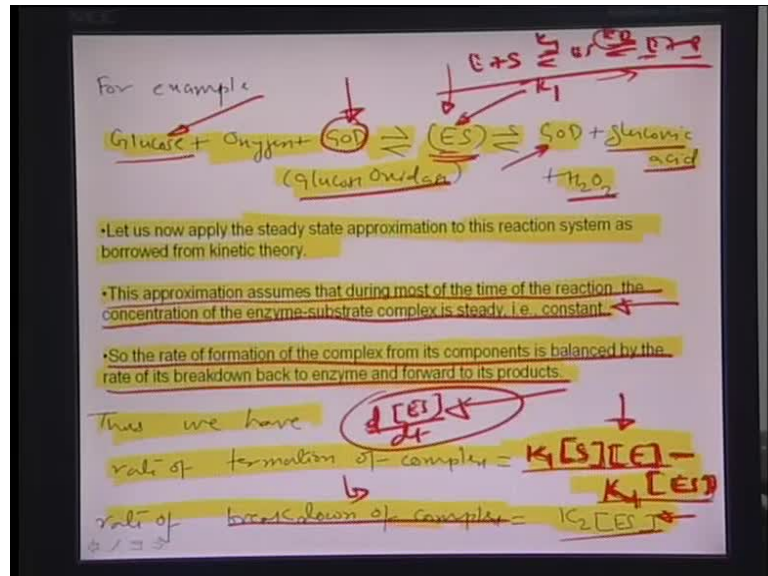 E+S ⇌ ES ⇌ E+P
K1
For example
Glucose + Oxygen + GOD ⇌ (ES) ⇌ GOD + gluconic acid
(Glucose Oxidase) + H2O2
•Let us now apply the steady state approximation to this reaction system as
borrowed from kinetic theory.
•This approximation assumes that during most of the time of the reaction, the
concentration of the enzyme-substrate complex is steady, i.e., constant.
•So the rate of formation of the complex from its components is balanced by the
rate of its breakdown back to enzyme and forward to its products.
Thus we have d[ES]/dt
rate of formation of complex = K1[S][E] –
K1[ES]
rate of breakdown of complex = K2[ES]